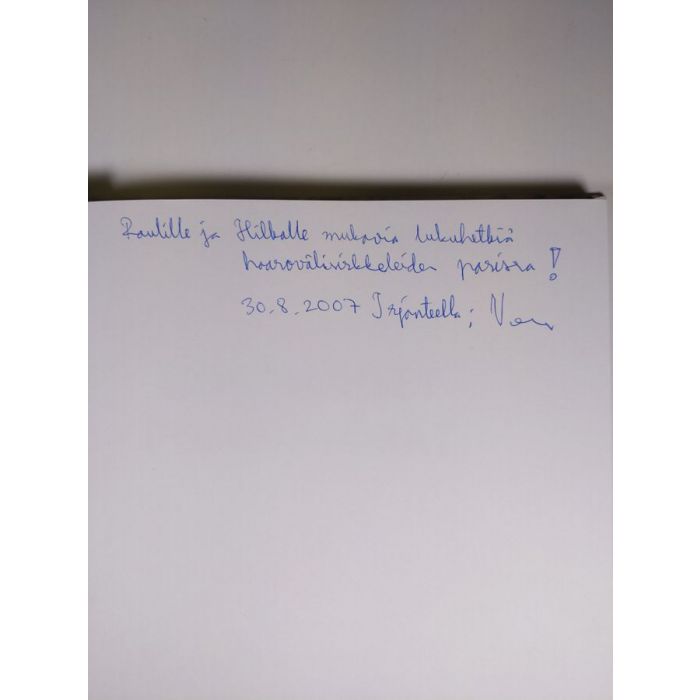 Raulille ja Hilkalle mukavia lukuhetkiä
haarovälisirkkeleiden parissa!
30.8.2007 Irjanteella;